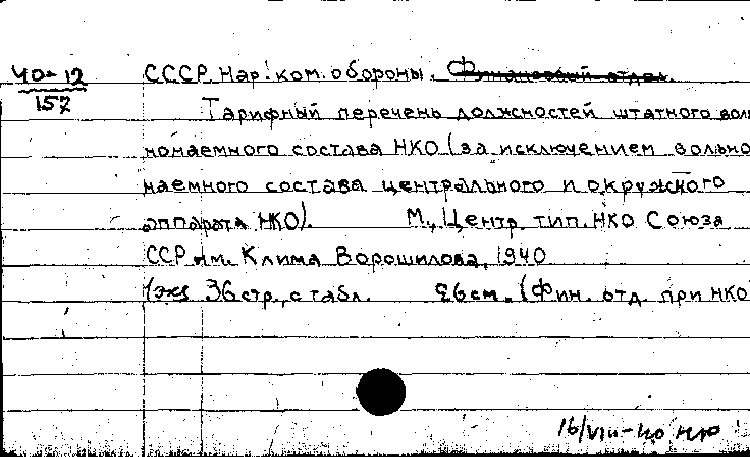 40-12
157
СССР. Нар. ком. обороны. Финансовый отдел.
Тарифный перечень должностей штатного воль
нонаемного состава НКО (за исключением вольно
наемного состава центрального и окружного
аппарата НКО). М., Центр. тип. НКО Союза
ССР им. Клима Ворошилова, 1940
36 стр., с табл. 26 см. (Фин. отд. при НКО
16/VIII-40